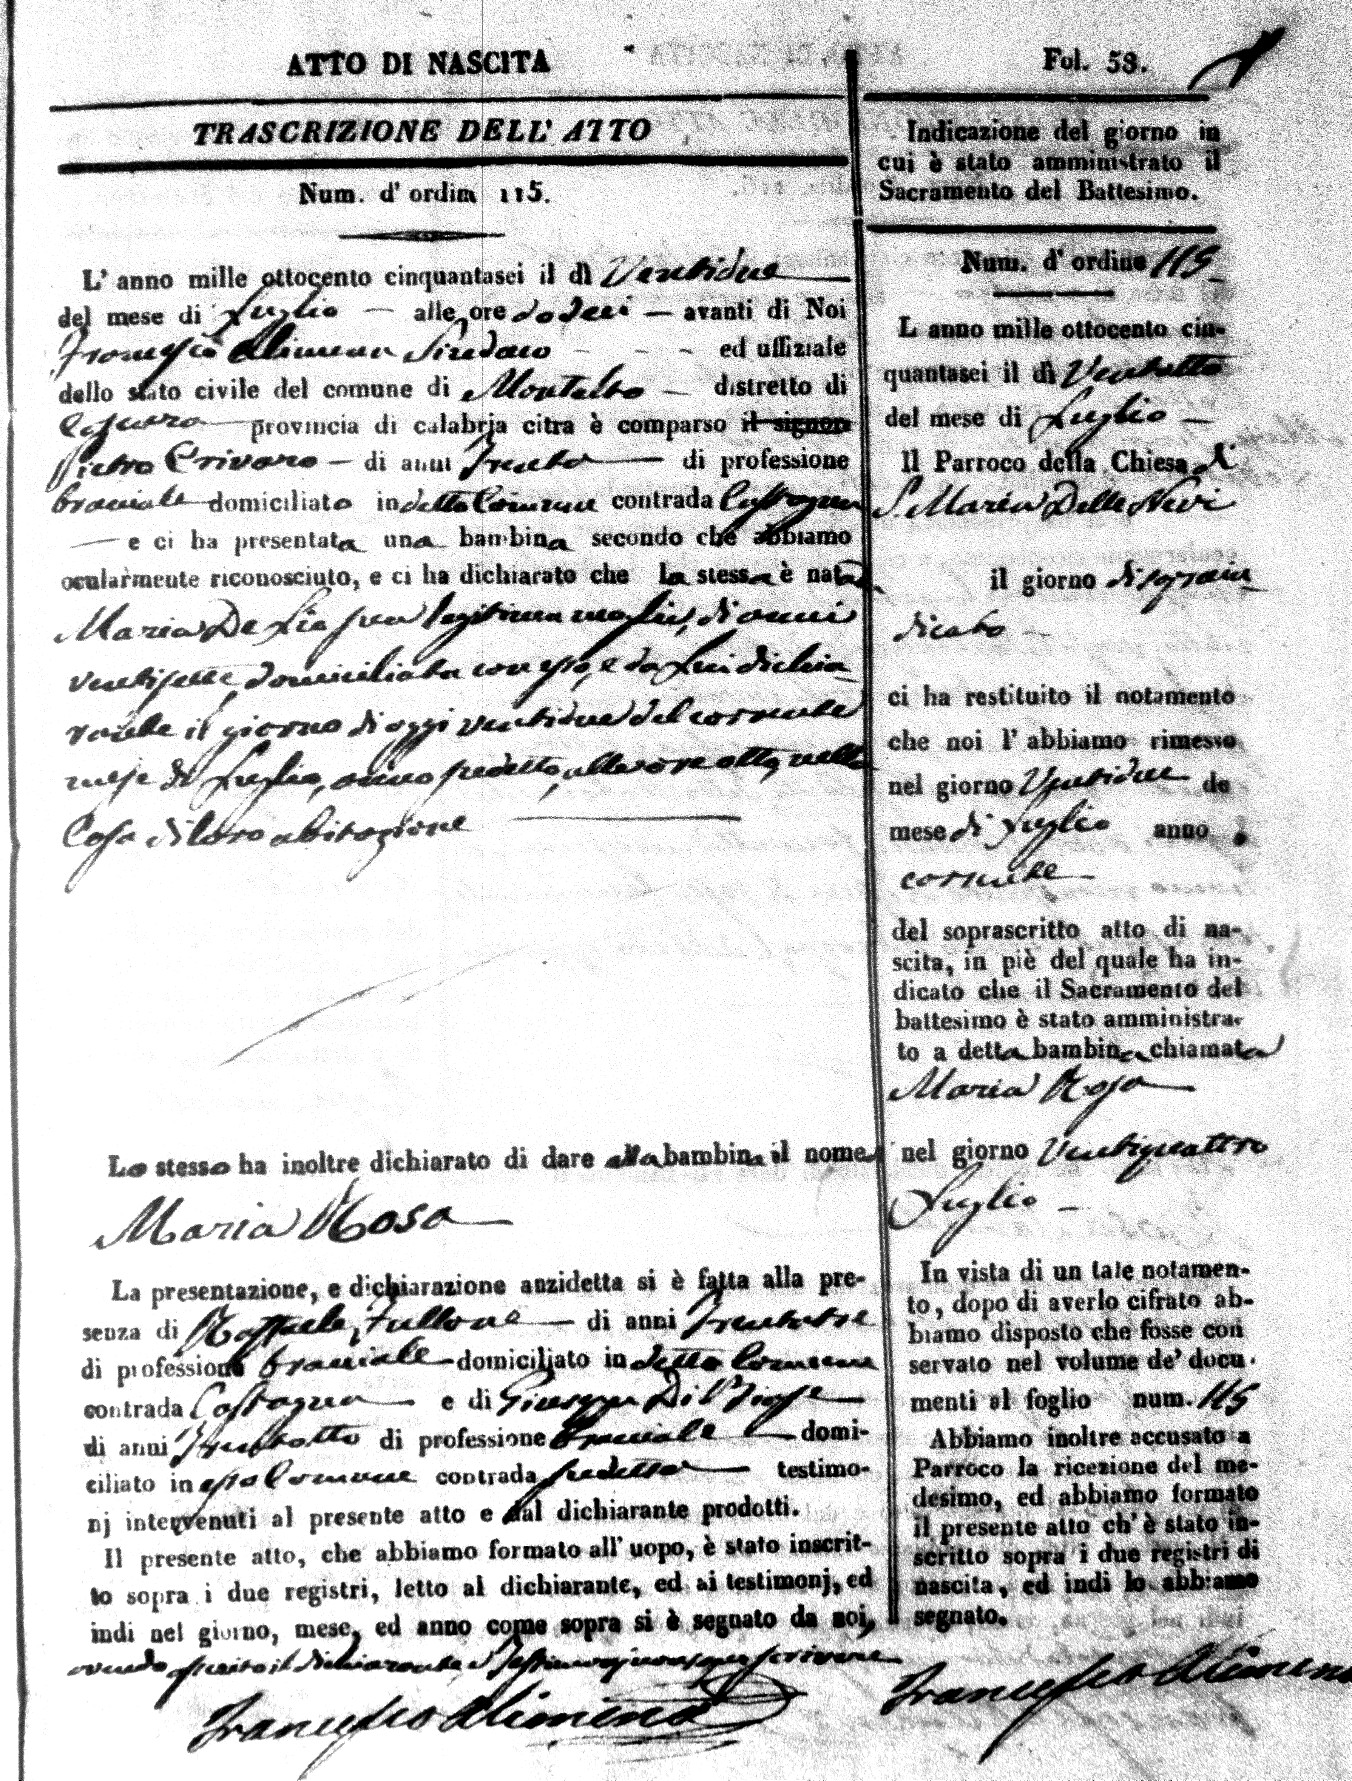 ATTO DI NASCITA
TRASCRIZIONE DELL' ATTO
Num. d' ordin 115.
L' anno mille ottocento cinquantasei il dì Ventidue
del mese di Luglio — alle ore dodeci — avanti di Noi
Francesco Alimena Sindaco - - - ed uffiziale
dello stato civile del comune di Montalto — distretto di
Cosenza provincia di calabria citra è comparso il signor
Pietro Crivaro — di anni Trenta — di professione
bracciale domiciliato in detto Comune contrada Castagna
— e ci ha presentata una bambina secondo che abbiamo
ocularmente riconosciuto, e ci ha dichiarato che la stessa è nata da
Maria De Lio sua legitima moglie, di anni
ventisette, domiciliata con esso, e da Lui dichia-
rante il giorno di oggi ventidue del corrente
mese di Luglio, anno sudetto, alle ore otto, nella
Casa di loro abitazione
Lo stesso ha inoltre dichiarato di dare alla bambina il nome
Maria Rosa
La presentazione, e dichiarazione anzidetta si è fatta alla pre-
senza di Raffaele Fullone — di anni Trentatre
di professione bracciale domiciliato in detto Comune
contrada Castagna — e di Giuseppe Di Biase
di anni Trentotto di professione bracciale — domi-
ciliato in esso Comune contrada sudetta — testimo-
nj intervenuti al presente atto e dal dichiarante prodotti.
Il presente atto, che abbiamo formato all' uopo, è stato inscrit-
to sopra i due registri, letto al dichiarante, ed ai testimonj, ed
indi nel giorno, mese, ed anno come sopra si è segnato da noi,
avendo asserito il dichiarante e Testimonj non saper scrivere
Francesco Alimena
Fol. 58.
Indicazione del giorno in
cui è stato amministrato il
Sacramento del Battesimo.
Num. d' ordine 115
L anno mille ottocento cin-
quantasei il dì Ventotto
del mese di Luglio —
Il Parroco della Chiesa di
S. Maria Delle Nevi
il giorno disoprain
dicato —
ci ha restituito il notamento
che noi l' abbiamo rimesso
nel giorno Ventidue de
mese di Luglio anno
corrente
del soprascritto atto di na-
scita, in piè del quale ha in-
dicato che il Sacramento del
battesimo è stato amministra-
to a detta bambina chiamata
Maria Rosa
nel giorno Ventiquattro
Luglio —
In vista di un tale notamen-
to, dopo di averlo cifrato ab-
biamo disposto che fosse con
servato nel volume de' docu-
menti al foglio num. 115
Abbiamo inoltre accusato a
Parroco la ricezione del me-
desimo, ed abbiamo formato
il presente atto ch' è stato in-
scritto sopra i due registri di
nascita, ed indi lo abbiamo
segnato.
Francesco Alimena